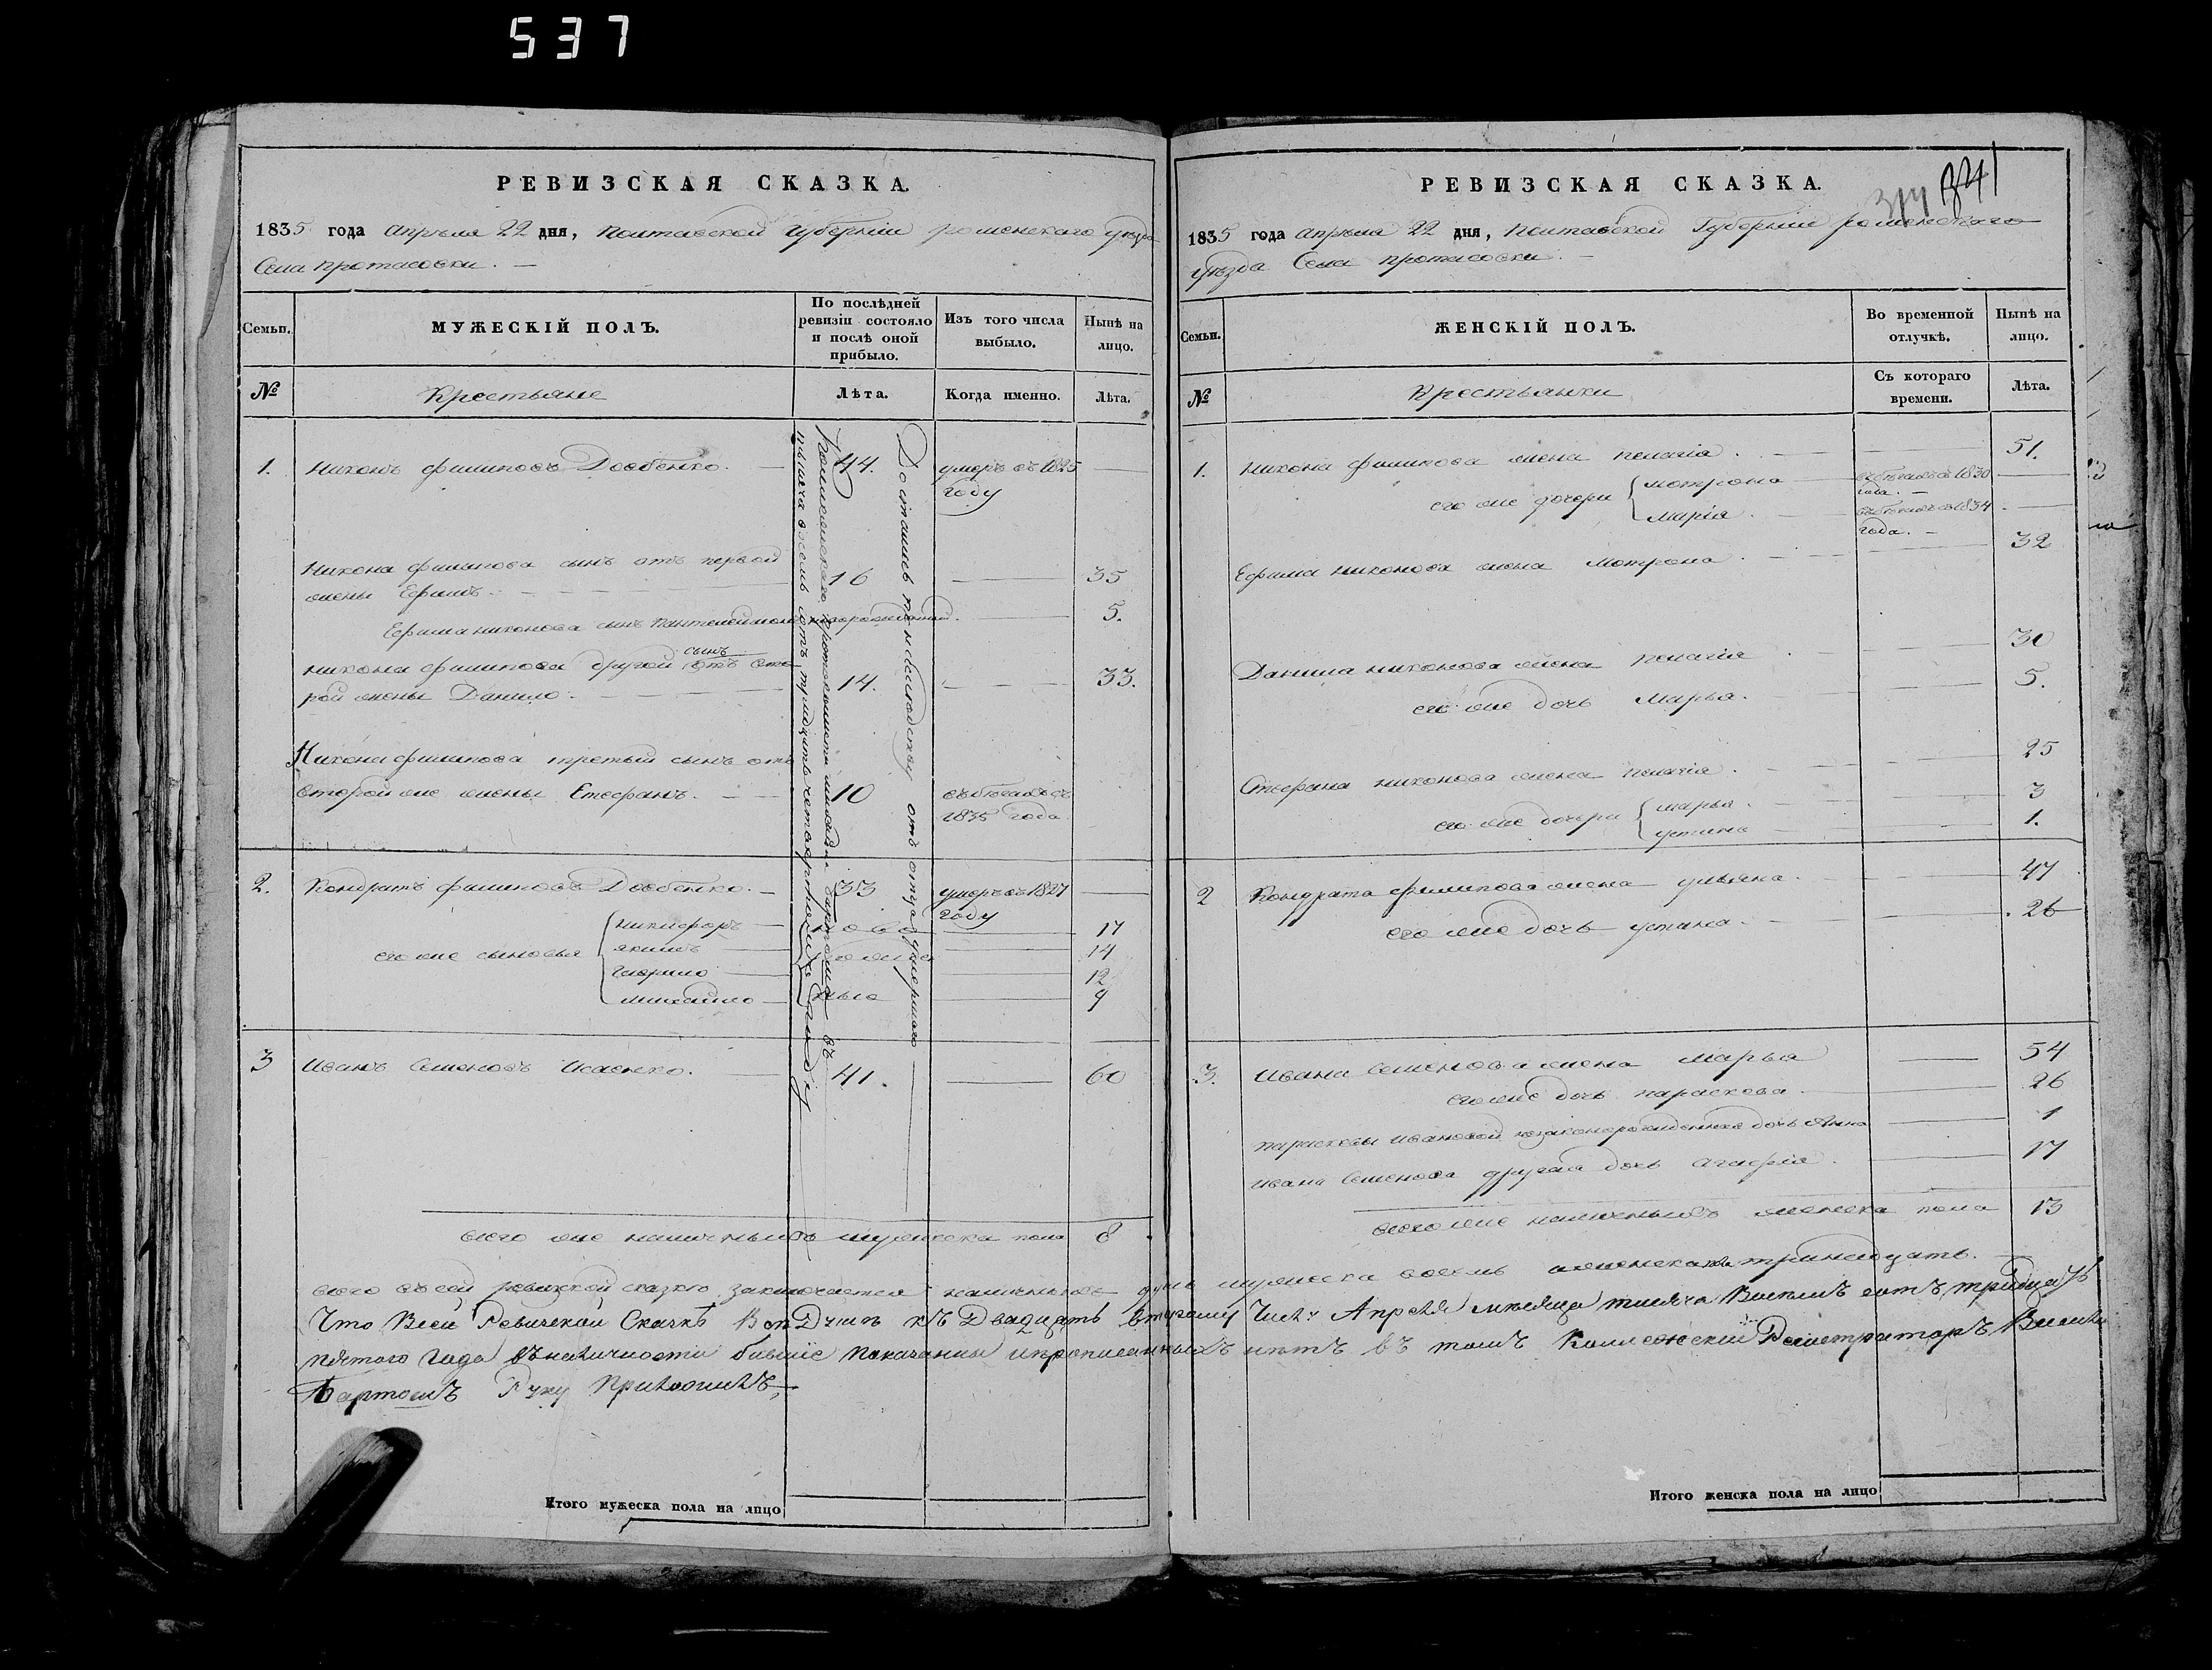 537
РЕВИЗСКАЯ СКАЗКА.
1835 года Апрѣля 22 дня, Полтавской Губерніи роменскаго уѣзда
Села протасовки.
Семьи.
МУЖЕСКІЙ ПОЛЪ.
По послѣдней ревизіи состояло и послѣ оной прибыло.
Изъ того числа выбыло.
Нынѣ на лицо.
№
Крестьяне
Лѣта.
Когда именно.
Лѣта.
Достались по наслѣдству отъ отца умершаго
тысяча восемь сотъ тридцать четвертомъ году
1. Никонъ филиповъ Довбенко. 44. умеръ въ 1825
году
Никона филипова сынъ отъ первой
жены Ефимъ. 16 35
Ефима никонова сынъ Пантелеймонъ новорожденный. 5.
никона филипова другой сынъ отъ вто
рой жены Данило. 14. 33.
Никона филипова третьій сынъ отъ
второй же жены Стефанъ. 10 въ бѣгахъ съ
1835 года
2. Кондратъ филиповъ Довбенко. 33 умеръ въ 1827
году
его же сыновья
никифоръ 17
якимъ 14
Гаврило 12
михайло 9
ново
рожден
ные
3 Иванъ Семеновъ Исаенко. 41. 60
всего же наличныхъ мужеска пола 8
РЕВИЗСКАЯ СКАЗКА.
314 341
1835 года Апрѣля 22 дня, Полтавской Губерніи роменскаго
уѣзда Села протасовки.
Семьи.
ЖЕНСКІЙ ПОЛЪ.
Во временной отлучкѣ.
Нынѣ на лицо.
№
Крестьянки
Съ котораго времени.
Лѣта.
1. Никона филипова жена пелагія. 51.
его же дочери
мотрона въ бѣгахъ съ 1830
года.
марія. въ бѣгахъ съ 1834
года.
Ефима никонова жена мотрона. 32
Данила никонова жена пелагія 30
его же дочь марья. 5.
Стефана никонова жена пелагія. 25
его же дочери
марья. 3
устина 1.
2 Кондрата филипова жена ульяна. 47
его же дочь устина. 26
3. Ивана Семенова жена марья 54
его же дочь параскева. 26
параскевы ивановой незаконорожденная дочь Анна 1
ивана Семенова другая дочь агафія. 17
всего же наличныхъ женска пола 13
всего въ сей ревизкой сказкѣ заключается наличныхъ душъ мужеска восемь а женска пола тринадцать.
Что Всей Ревизской Сказкѣ Всѣ Души къ Двадцать второму Числу Апрѣля мѣсяца тысяча Восемь сотъ тридцать
пятого года въ наличности бывшіе показанны и прописанныхъ нѣтъ въ томъ Коллежскій Регистраторъ Василій
Бартошъ Руку Приложилъ
Итого мужеска пола на лицо
Итого женска пола на лицо